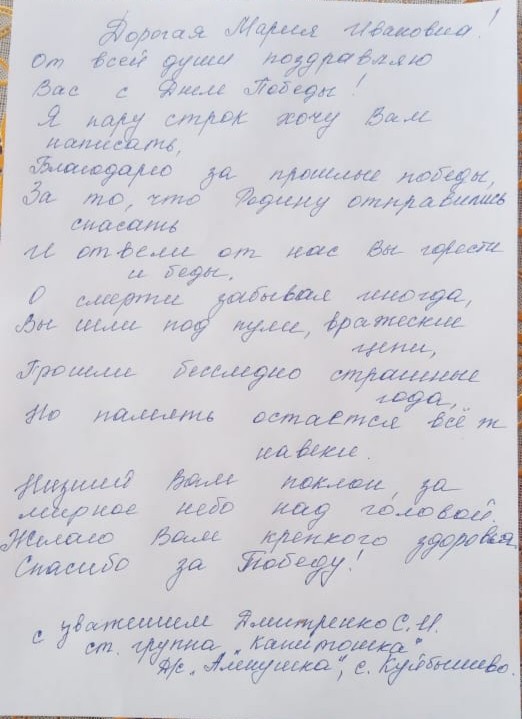 Дорогая Мария Ивановна!
от всей души поздравляю
Вас с Днем Победы!
Я пару строк хочу Вам
написать,
Благодарю за прошлые победы,
За то, что Родину отправились
спасать
И отвели от нас Вы горести
и беды.
О смерти забывая иногда,
Вы шли под пули, вражеские
цепи,
Прошли бесследно страшные
года,
Но память остается всё ж
навеки.
Низкий Вам поклон, за
мирное небо над головой.
Желаю Вам крепкого здоровья
Спасибо за Победу!
с уважением Дмитренко С.И.
ст. группа "Капитошка"
д/с "Аленушка", с. Куйбышево.